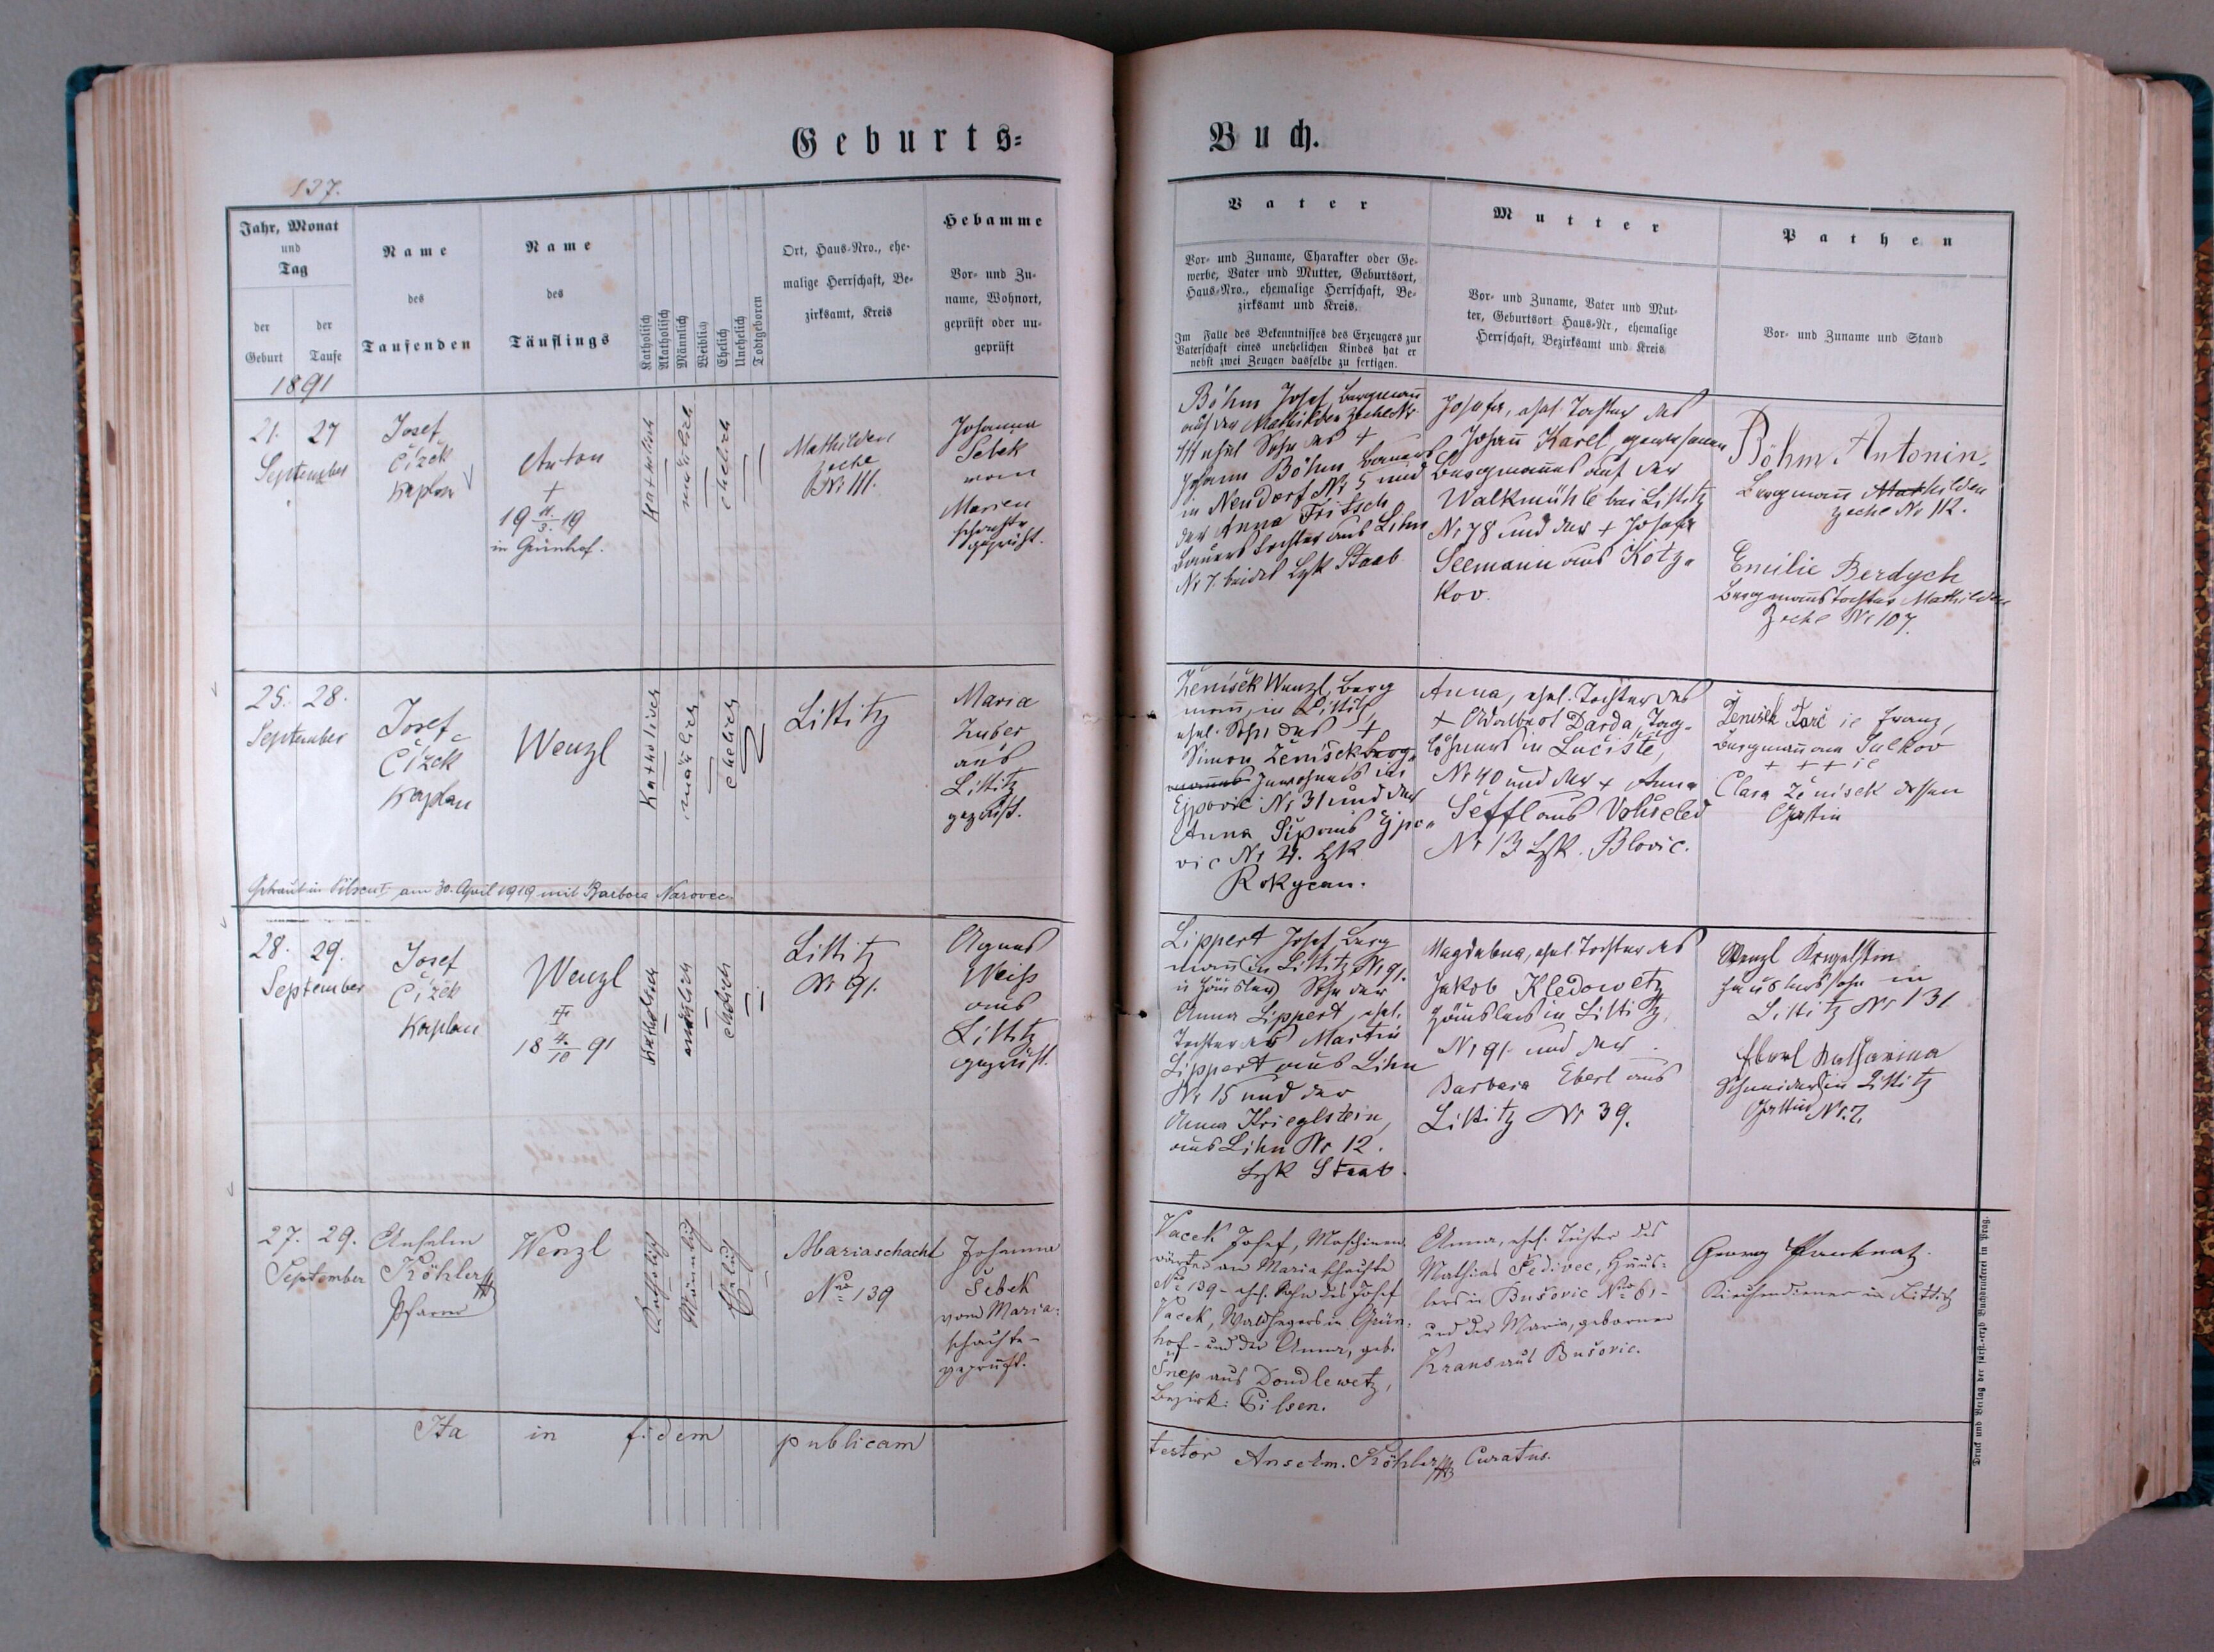 Geburts-
Buch.
137.
Jahr, Monat
und
Tag
der
Geburt
der
Taufe
Name
des
Taufenden
Name
des
Täuflings
Katholisch
Akatholisch
Männlich
Weiblich
Ehelich
Unehelich
Todtgeboren
Ort, Haus-Nro., ehe-
malige Herrschaft, Be-
zirksamt, Kreis
Hebamme
Vor- und Zu-
name, Wohnort,
geprüft oder un-
geprüft
Vater
Vor- und Zuname, Charakter oder Ge-
werbe, Vater und Mutter, Geburtsort,
Haus-Nro., ehemalige Herrschaft, Be-
zirksamt und Kreis.
Im Falle des Bekenntnisses des Erzeugers zur
Vaterschaft eines unehelichen Kindes hat er
nebst zwei Zeugen dasselbe zu fertigen.
Mutter
Vor- und Zuname, Vater und Mut-
ter, Geburtsort Haus-Nr., ehemalige
Herrschaft, Bezirksamt und Kreis
Pathen
Vor- und Zuname und Stand
1891
21. 27
September
Josef
Čížek
Kaplan
Anton
+
19 11./3. 19
in Grünhof.
Katholisch
männlich
ehelich
Mathilden
Zeche
Nr 111.
Johanna
Sebek
vom
Marien
schachte
geprüft.
Böhm Josef, Bergmann
auf der Mathilden Zeche Nr
111 ehel Sohn des +
Johann Böhm Bauers
in Neudorf Nr 5 und
der Anna Fritsch
Bauers Tochter aus Lihn
Nr 7. beides Bzk Staab
Josefa, ehel. Tochter des
Johann Karel, gewesenen
Bergmannes auf der
Walkmühle bei Littitz
Nr 78 und der + Josefa
Seemann aus Kotz-
kov.
Böhm Antonin,
Bergmann Mathilden
zeche Nr 112.
Emilie Berdych
Bergmannstochter Mathilden
Zeche Nr 107.
25. 28.
September
Josef
Čížek
Kaplan
Wenzl
Katholisch
männlich
ehelich
Littitz
Maria
Huber
aus
Littitz
geprüft.
Ženíšek Wenzl, Berg
mann, in Littitz,
ehel. Sohn des +
Simon Ženíšek Berg-
mannes Inwohners in
Ejpovic Nr 31 und der
Anna Šíp aus Ejpo-
vic Nr 4. Bzk
Rokycan.
Anna, ehel. Tochter des
+ Adalbert Darda, Tag-
löhners in Lučiště,
Nr 40 und der + Anna
Šeffl aus Vohseled
Nr 13 Bzk. Blovic.
Ženíšek Franz,
Bergmann aus Sulkov
+ + +
Clara Ženíšek dessen
Gattin
Getraut in Pilsen am 30. April 1919 mit Barbora Narovec.
28. 29.
September
Josef
Čížek
Kaplan
Wenzl
18 4./10 91
Katholisch
männlich
ehelich
Littitz
Nr 91.
Agnes
Weiss
aus
Littitz
geprüft.
Lippert Josef, Berg
mann in Littitz Nr 91.
(u Häusler) Sohn der
Anna Lippert, ehel.
Tochter des Martin
Lippert aus Lihn
Nr 15 und der
Anna Krieglstein,
aus Lihn Nr 12.
Bzk Staab.
Magdalena, ehel. Tochter des
Jakob Kledowetz
Häuslers in Littitz,
Nr 91. und der
Barbara Eberl aus
Littitz Nr 39.
Wenzl
Häuslerssohn in
Littitz Nr 131
Eberl Katharina
Schneiders in Littitz
Gattin Nr. 7.
27. 29.
September
Anselm
Köhler
Pfarrer
Wenzl
Katholisch
Männlich
Ehelich
Mariaschacht
Nro 139
Johanna
Šebek
vom Maria-
schachte -
geprüft.
Vacek Josef, Maschinen-
wärter am Mariaschachte
Nro 139 - ehel. Sohn des Josef
Vacek, Waldhegers in Grün-
hof - und der Anna, geb.
Šnep aus Doudlewetz,
Bezirk: Pilsen.
Anna, ehel. Tochter des
Mathias Šedivec, Häus-
lers in Bušovic Nro 61 -
und der Maria, geborner
Kraus aus Bušovic.
Georg
Kirchendiener in Littitz
Ita in fidem publicam
testor Anselm. Köhler Curatus.
Druck und Verlag der fürst.-erzb Buchdruckerei in Prag.